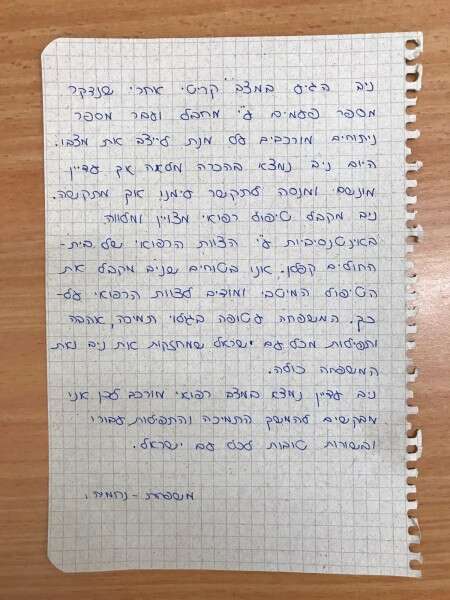 ניב הגיע במצב קריטי אחרי שנדקר
מספר פעמים ע"י מחבל ועבר מספר
ניתוחים מורכבים על מנת לייצב את מצבו.
היום ניב נמצא בהכרה מלאה אך עדיין
מונשם ומנסה לתקשר עימנו אך מתקשה.
ניב מקבל טיפול רפואי מצויין ומלווה
באינטנסיביות ע"י הצוות הרפואי של בית-
החולים קפלן. אנו בטוחים שניב מקבל את
הטיפול המיטבי ומודים לצוות הרפואי על-
כך. המשפחה עטופה בגלוי תמיכה, אהבה
ותפילות מכל עם ישראל שמחזקות את ניב ואת
המשפחה כולה.
ניב עדיין נמצא במצב רפואי מורכב לכן אנו
מבקשים להמשך התמיכה והתפילות עבורו
ובשורות טובות לכל עם ישראל.
משפחת - נחמיה.